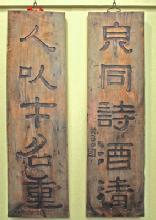 泉同詩酒清
人以才名重